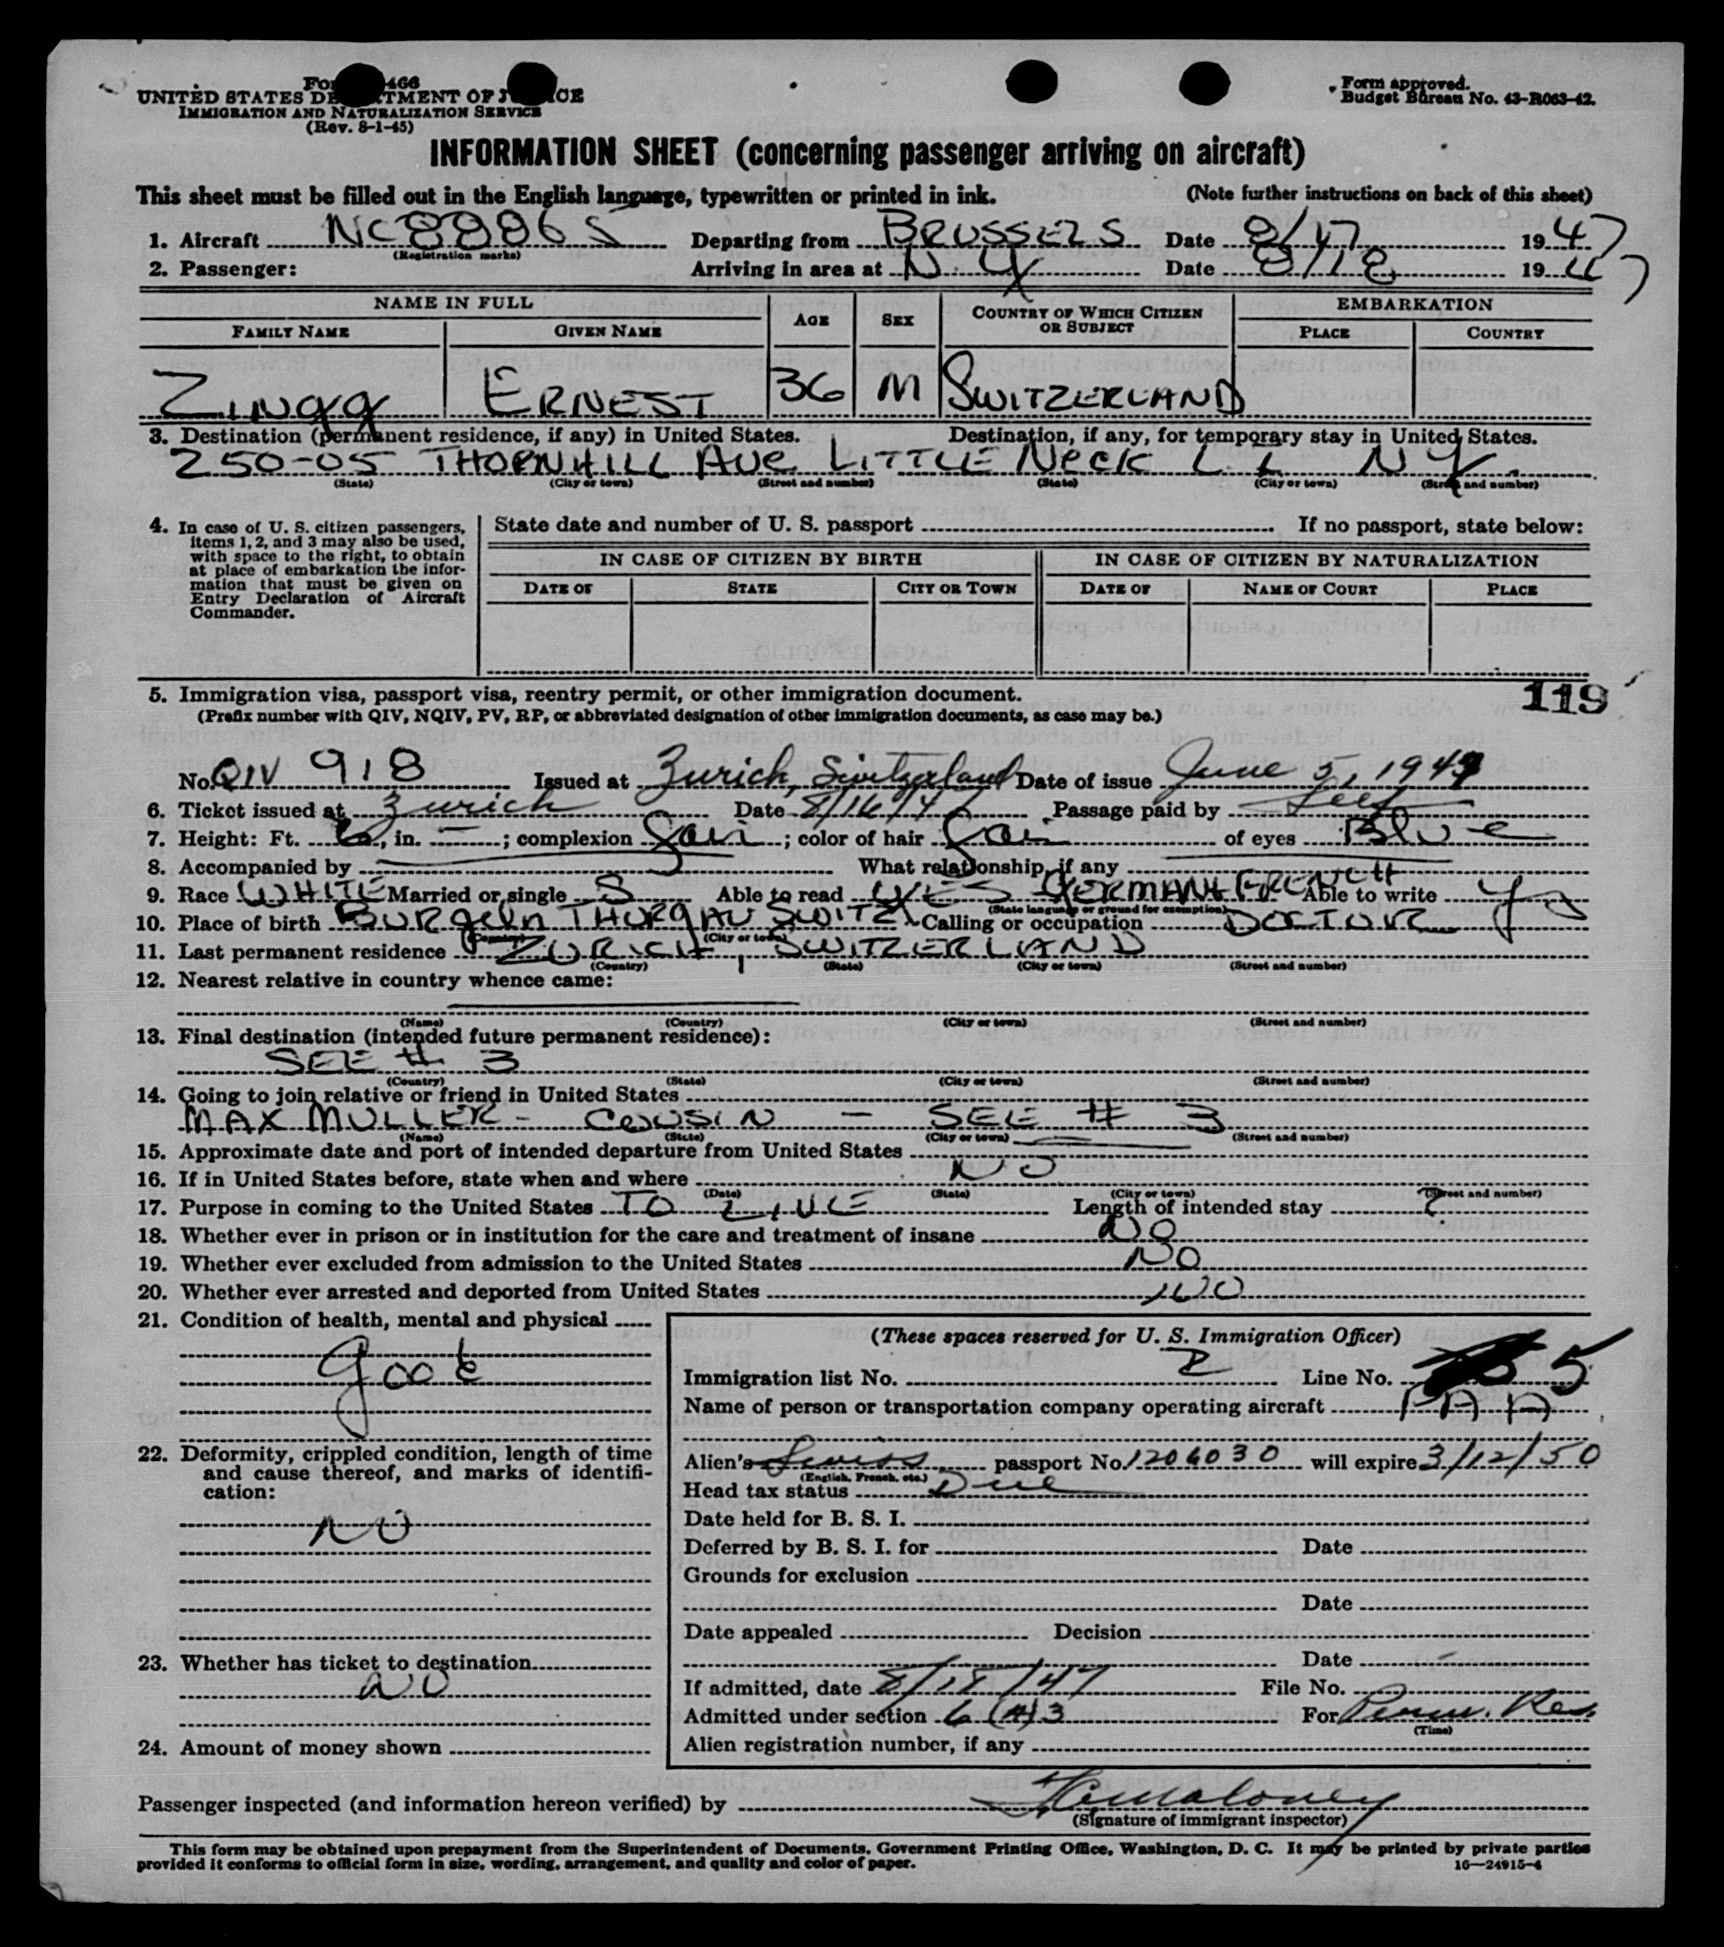 UNITED STATES DEPARTMENT OF JUSTICE
IMMIGRATION AND NATURALIZATION SERVICE
(Rev. 8-1-45)
Form approved.
Budget Bureau No. 43-R063-42.
INFORMATION SHEET (concerning passenger arriving on aircraft)
This sheet must be filled out in the English language, typewritten or printed in ink. (Note further instructions on back of this sheet)
1. Aircraft NC88865 Departing from BRUSSELS Date 8/17 1947
(Registration marks)
2. Passenger: Arriving in area at N.Y Date 8/18 1947
NAME IN FULL AGE SEX COUNTRY OF WHICH CITIZEN OR SUBJECT EMBARKATION
FAMILY NAME GIVEN NAME PLACE COUNTRY
ZINGG ERNEST 36 M SWITZERLAND
3. Destination (permanent residence, if any) in United States. Destination, if any, for temporary stay in United States.
250-05 THORNHILL AVE LITTLE NECK L I NY.
(State) (City or town) (Street and number) (State) (City or town) (Street and number)
4. In case of U. S. citizen passengers, items 1, 2, and 3 may also be used, with space to the right, to obtain at place of embarkation the information that must be given on Entry Declaration of Aircraft Commander.
State date and number of U. S. passport If no passport, state below:
IN CASE OF CITIZEN BY BIRTH IN CASE OF CITIZEN BY NATURALIZATION
DATE OF STATE CITY OR TOWN DATE OF NAME OF COURT PLACE
5. Immigration visa, passport visa, reentry permit, or other immigration document. 119
(Prefix number with QIV, NQIV, PV, RP, or abbreviated designation of other immigration documents, as case may be.)
No. QIV 918 Issued at Zurich, Switzerland Date of issue June 5, 1947
6. Ticket issued at Zurich Date 8/16/47 Passage paid by Self
7. Height: Ft. 6, in. —; complexion Fair; color of hair Fair of eyes Blue
8. Accompanied by What relationship, if any
9. Race WHITE Married or single S Able to read YES GERMAN & FRENCH Able to write Yes
(State language or ground for exemption)
10. Place of birth THURGAU SWITZ Calling or occupation DOCTOR
(Country) (City or town)
11. Last permanent residence ZURICH, SWITZERLAND
(Country) (State) (City or town) (Street and number)
12. Nearest relative in country whence came:
(Name) (Country) (City or town) (Street and number)
13. Final destination (intended future permanent residence):
SEE # 3
(Country) (State) (City or town) (Street and number)
14. Going to join relative or friend in United States
MAX MULLER - COUSIN - SEE # 3
(Name) (State) (City or town) (Street and number)
15. Approximate date and port of intended departure from United States
16. If in United States before, state when and where NO
(Date) (State) (City or town) (Street and number)
17. Purpose in coming to the United States TO LIVE Length of intended stay ?
18. Whether ever in prison or in institution for the care and treatment of insane NO
19. Whether ever excluded from admission to the United States NO
20. Whether ever arrested and deported from United States NO
21. Condition of health, mental and physical
Good
22. Deformity, crippled condition, length of time and cause thereof, and marks of identification:
NO
23. Whether has ticket to destination
NO
24. Amount of money shown
(These spaces reserved for U. S. Immigration Officer)
Immigration list No. 2 Line No. 5
Name of person or transportation company operating aircraft PAA
Alien's Swiss passport No. 1206030 will expire 3/12/50
(English, French, etc.)
Head tax status Due
Date held for B. S. I.
Deferred by B. S. I. for Date
Grounds for exclusion
Date
Date appealed Decision
Date
If admitted, date 8/18/47 File No.
Admitted under section 6(A)3 For Perm. Res.
(Time)
Alien registration number, if any
Passenger inspected (and information hereon verified) by
(Signature of immigrant inspector)
This form may be obtained upon prepayment from the Superintendent of Documents, Government Printing Office, Washington, D. C. It may be printed by private parties
provided it conforms to official form in size, wording, arrangement, and quality and color of paper. 16—24915-4